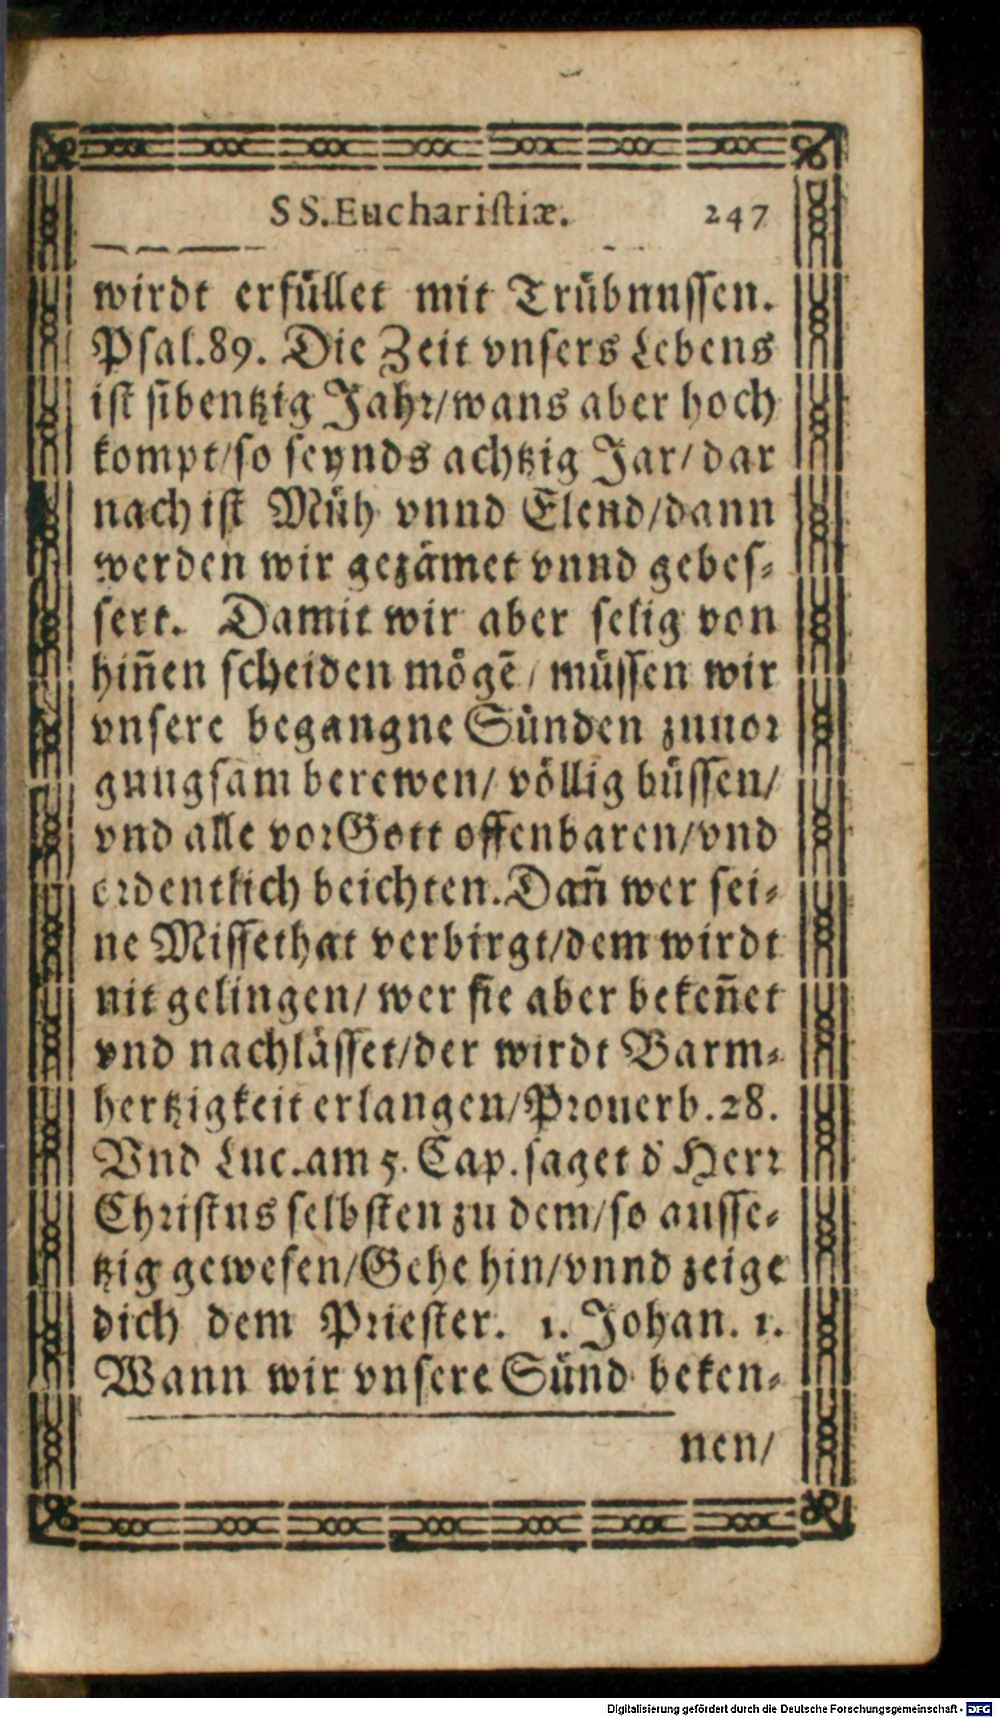 SS. Eucharistiæ. 247
wirdt erfüllet mit Trübnussen.
Psal. 89. Die Zeit vnsers Lebens
ist sibentzig Jahr/wans aber hoch
kompt/so seynds achtzig Jar/dar
nach ist Müh vnnd Elend/dann
werden wir gezämet vnnd gebes-
sert. Damit wir aber selig von
hiñen scheiden mögẽ/müssen wir
vnsere begangne Sünden zuuor
gnugsam berewen/völlig büssen/
vnd alle vor Gott offenbaren/vnd
ordentlich beichten. Dañ wer sei-
ne Missethat verbirgt/dem wirdt
nit gelingen/wer sie aber bekeñet
vnd nachlässet/der wirdt Barm-
hertzigkeit erlangen/Prouerb. 28.
Vnd Luc. am 5. Cap. saget d̕ Herr
Christus selbsten zu dem/so ausse-
tzig gewesen/Gehe hin/vnnd zeige
dich dem Priester. 1. Johan. 1.
Wann wir vnsere Sünd beken-
nen/
Digitalisierung gefördert durch die Deutsche Forschungsgemeinschaft - DFG